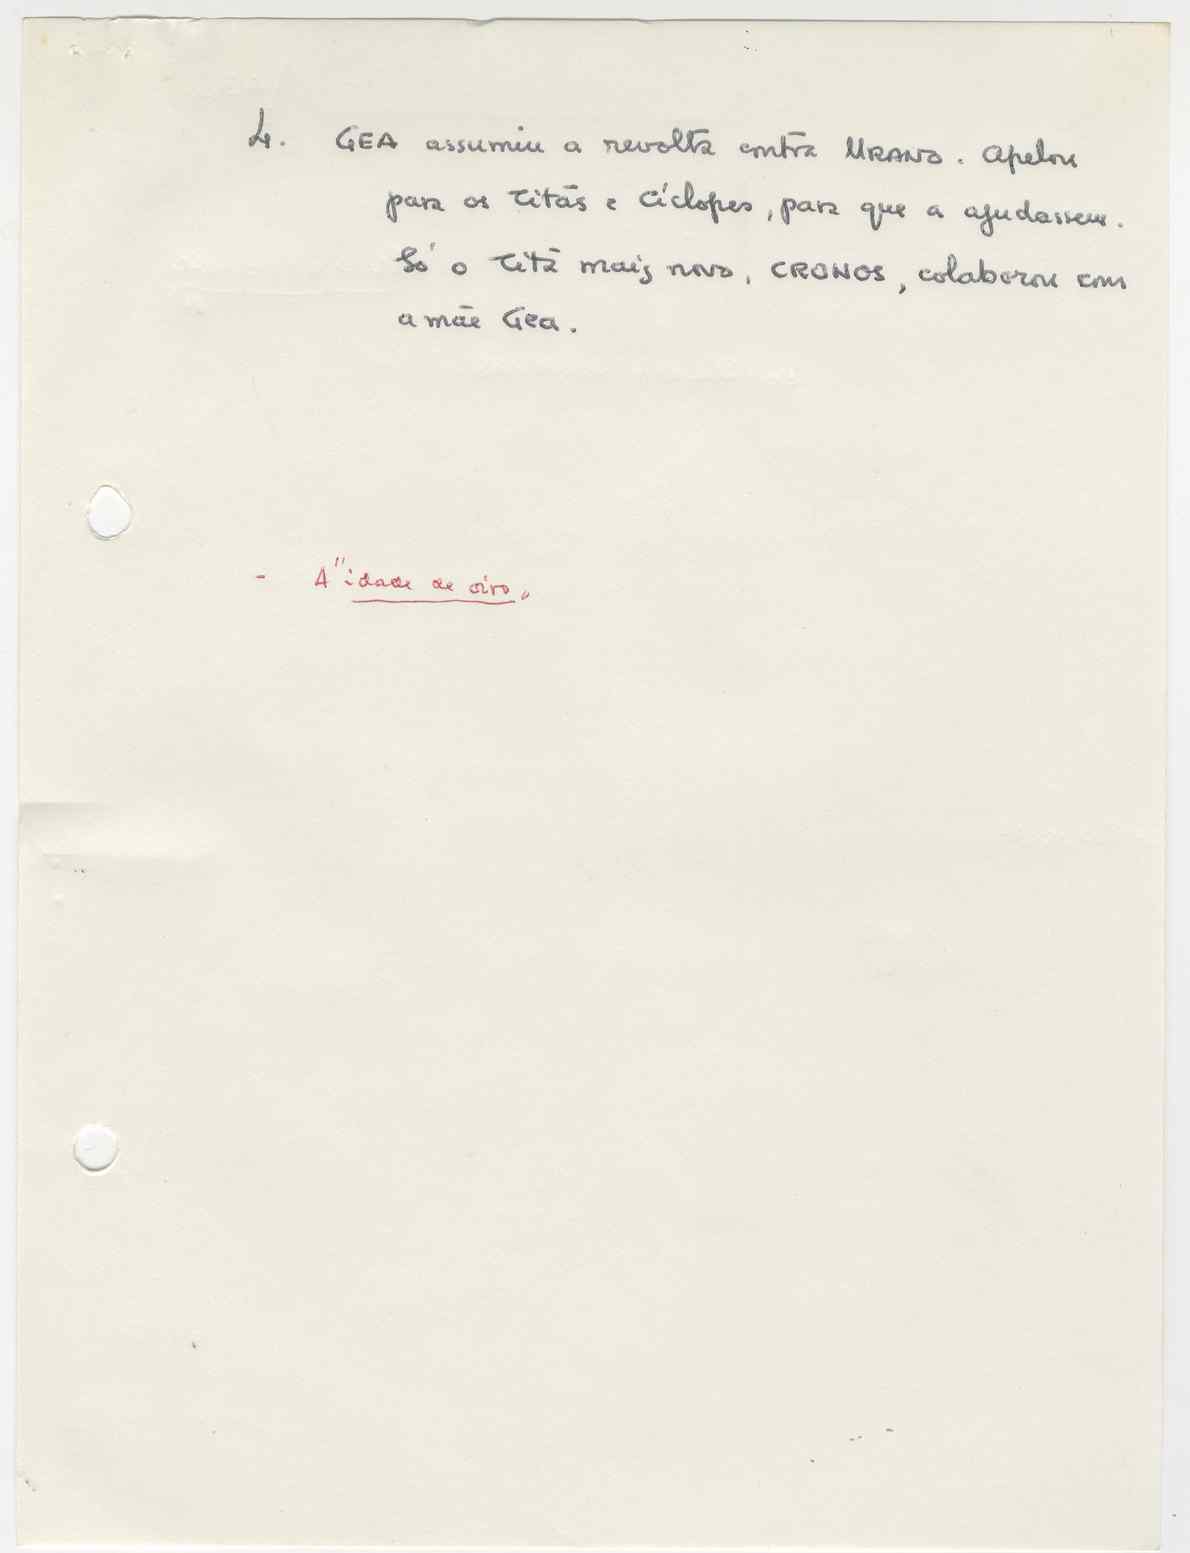 4. GEA assumiu a revolta contra URANO. Apelou
para os Titãs e Cíclopes, para que a ajudassem.
Só o Titã mais novo, CRONOS, colaborou com
a mãe Gea.
- A "idade de oiro"